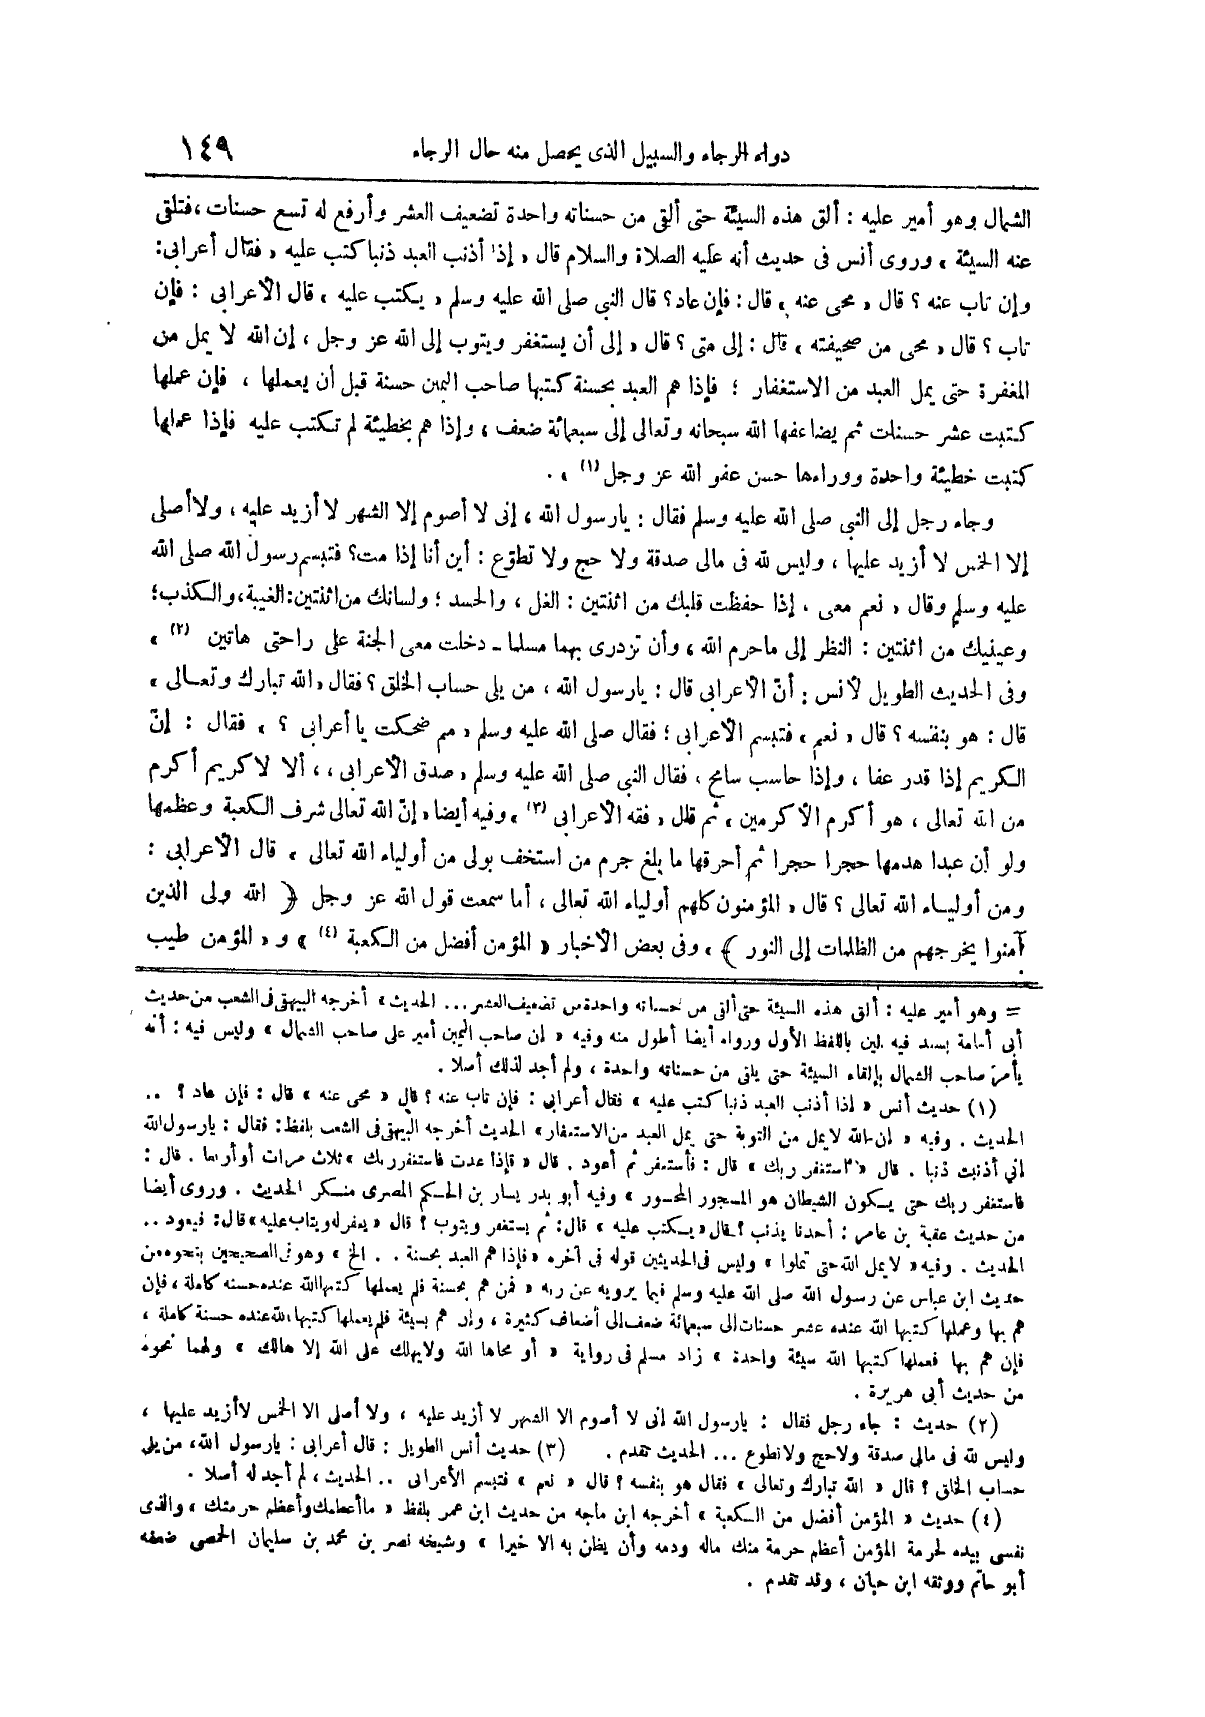 دواء الرجاء والسبيل الذى يحصل منه حال الرجاء ١٤٩
الشمال وهو أمير عليه : ألق هذه السيئة حتى ألقى من حسناته واحدة تضعيف العشر وأرفع له تسع حسنات ، فتلقى
عنه السيئة » وروى أنس فى حديث أنه عليه الصلاة والسلام قال « إذا أذنب العبد ذنبا كتب عليه » فقال أعرابى :
وإن تاب عنه ؟ قال « محى عنه » قال : فإن عاد ؟ قال النبى صلى الله عليه وسلم « يكتب عليه » قال الأعرابى : فإن
تاب ؟ قال « محى من صحيفته » قال : إلى متى ؟ قال « إلى أن يستغفر ويتوب إلى الله عز وجل ، إن الله لا يمل من
المغفرة حتى يمل العبد من الاستغفار ؛ فإذا هم العبد بحسنة كتبها صاحب اليمين حسنة قبل أن يعملها ، فإن عملها
كتبت عشر حسنات ثم يضاعفها الله سبحانه وتعالى إلى سبعمائة ضعف ، وإذا هم بخطيئة لم تكتب عليه فإذا عملها
كتبت خطيئة واحدة ووراءها حسن عفو الله عز وجل (١) » .
وجاء رجل إلى النبى صلى الله عليه وسلم فقال : يارسول الله ، إنى لا أصوم إلا الشهر لا أزيد عليه ، ولا أصلى
إلا الخمس لا أزيد عليها ، وليس لله فى مالى صدقة ولا حج ولا تطوّع : أين أنا إذا مت ؟ فتبسم رسول الله صلى الله
عليه وسلم وقال « نعم معى ، إذا حفظت قلبك من اثنتين : الغل ، والحسد ؛ ولسانك من اثنتين : الغيبة ، والكذب ؛
وعينيك من اثنتين : النظر إلى ماحرم الله ، وأن تزدرى بهما مسلما ـ دخلت معى الجنة على راحتى هاتين (٢) »
وفى الحديث الطويل لأنس : أنّ الأعرابى قال : يارسول الله ، من يلى حساب الخلق ؟ فقال « الله تبارك وتعالى »
قال : هو بنفسه ؟ قال « نعم » فتبسم الأعرابى ؛ فقال صلى الله عليه وسلم « مم ضحكت يا أعرابى ؟ » فقال : إنّ
الكريم إذا قدر عفا ، وإذا حاسب سامح ، فقال النبى صلى الله عليه وسلم « صدق الأعرابى ، ، ألا لا كريم أكرم
من الله تعالى ، هو أكرم الأكرمين » ثم قال « فقه الأعرابى (٣) » وفيه أيضا « إنّ الله تعالى شرف الكعبة وعظمها
ولو أن عبدا هدمها حجرا حجرا ثم أحرقها ما بلغ جرم من استخف بولى من أولياء الله تعالى » قال الأعرابى :
ومن أولياء الله تعالى ؟ قال « المؤمنون كلهم أولياء الله تعالى ، أما سمعت قول الله عز وجل ﴿ الله ولى الذين
آمنوا يخرجهم من الظلمات إلى النور ﴾ » وفى بعض الأخبار « المؤمن أفضل من الكعبة (٤) » و « المؤمن طيب
= وهو أمير عليه : ألق هذه السيئة حتى ألقى من حسناته واحدة من تضعيف العشر ... الحديث » أخرجه البيهقى فى الشعب من حديث
أبى أمامة بسند فيه لين باللفظ الأول ورواه أيضا أطول منه وفيه « إن صاحب اليمين أمير على صاحب الشمال » وليس فيه : أنه
يأمر صاحب الشمال بإلقاء السيئة حتى يلقى من حسناته واحدة ، ولم أجد لذلك أصلا .
(١) حديث أنس « إذا أذنب العبد ذنبا كتب عليه » فقال أعرابى : فإن تاب عنه ؟ قال « محى عنه » قال : فإن عاد ؟ ..
الحديث . وفيه « إن الله لا يمل من التوبة حتى يمل العبد من الاستغفار » الحديث أخرجه البيهقى فى الشعب بلفظ : فقال : يارسول الله
انى أذنبت ذنبا . قال « استغفر ربك » قال : فأستغفر ثم أعود . قال « فإذا عدت فاستغفر ربك » ثلاث مرات أو أربعا . قال :
فاستغفر ربك حتى يكون الشيطان هو المسجور المحسور » وفيه أبو بدر يسار بن الحكم المصرى منكر الحديث . وروى أيضا
من حديث عقبة بن عامر : أحدنا يذنب ؟ قال « يكتب عليه » قال : ثم يستغفر ويتوب ؟ قال « يغفر له ويتاب عليه » قال : فيعود ..
الحديث . وفيه « لا يمل الله حتى تملوا » وليس فى الحديثين قوله فى آخره « فإذا هم العبد بحسنة . . الخ » وهو فى الصحيحين بنحوه من
حديث ابن عباس عن رسول الله صلى الله عليه وسلم فيما يرويه عن ربه « فمن هم بحسنة فلم يعملها كتبها الله عنده حسنة كاملة ، فإن
هم بها وعملها كتبها الله عنده عشر حسنات إلى سبعمائة ضعف إلى أضعاف كثيرة ، وإن هم بسيئة فلم يعملها كتبها الله عنده حسنة كاملة ،
فإن هم بها فعملها كتبها الله سيئة واحدة » زاد مسلم فى رواية « أو محاها الله ولا يهلك على الله إلا هالك » ولهما نحوه
من حديث أبى هريرة .
(٢) حديث : جاء رجل فقال : يارسول الله انى لا أصوم الا الشهر لا أزيد عليه ، ولا أصلى الا الخمس لا أزيد عليها ،
وليس لله فى مالى صدقة ولا حج ولا تطوع ... الحديث تقدم . (٣) حديث أنس الطويل : قال أعرابى : يارسول الله ، من يلى
حساب الخلق ؟ قال « الله تبارك وتعالى » فقال هو بنفسه ؟ قال « نعم » فتبسم الأعرابى .. الحديث ، لم أجد له أصلا .
(٤) حديث « المؤمن أفضل من الكعبة » أخرجه ابن ماجه من حديث ابن عمر بلفظ « ما أعظمك وأعظم حرمتك » والذى
نفسى بيده لحرمة المؤمن أعظم حرمة منك ماله ودمه وأن يظن به الا خيرا » وشيخه نصر بن محمد بن سليمان الحمصى ضعفه
أبو حاتم ووثقه ابن حبان ، وقد تقدم .